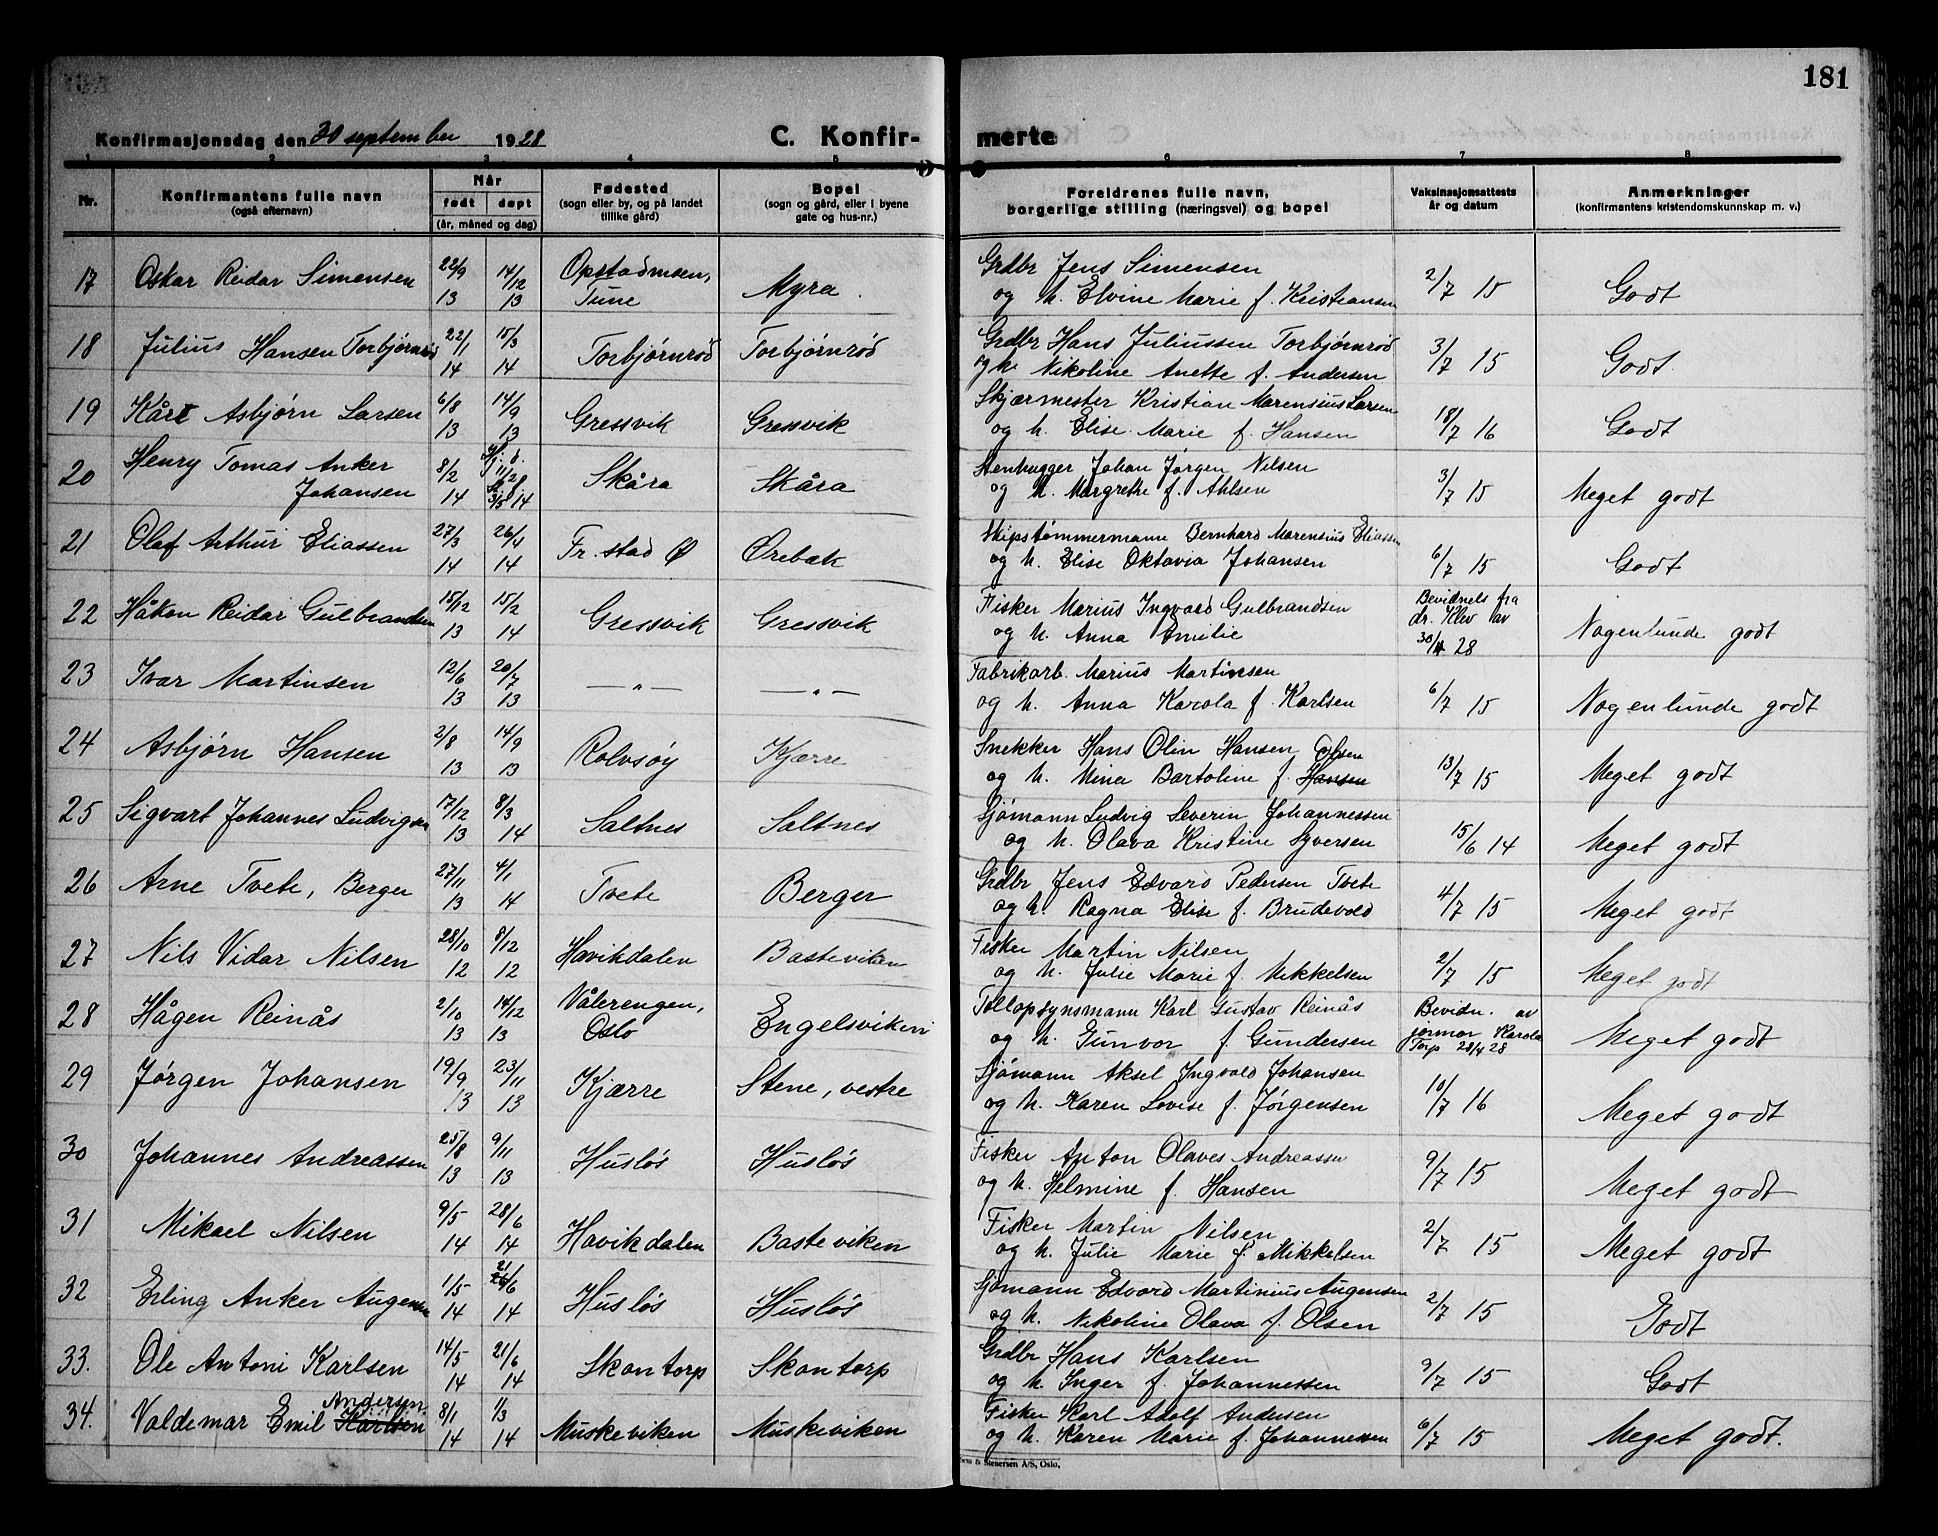 181
Konfirmasjonsdag den 30 september 1928 C. Konfirmerte
1 2 3 4 5 6 7 8
Nr.
Konfirmantens fulle navn
(også efternavn)
Når
født døpt
(år, måned og dag)
Fødested
(sogn eller by, og på landet
tillike gård)
Bopel
(sogn og gård, eller i byene
gate og hus-nr.)
Foreldrenes fulle navn,
borgerlige stilling (næringsvei) og bopel
Vaksinasjonsattests
år og datum
Anmerkninger
(konfirmantens kristendomskunnskap m. v.)
17 Oskar Reidar Simensen 22/9 13 14/12 13 Opstadmsen, Tune Myra. Grdbr Jens Simensen
og h. Elvine Marie f. Kristiansen 2/7 15 Godt
18 Julius Hansen Torbjørnrød 22/1 14 15/3 14 Torbjørnrød Torbjørnrød Grdbr Hans Juliussen Torbjørnrød
og h. Nikoline Anette f. Andersen 3/7 15 Godt.
19 Kåre Asbjørn Larsen 6/8 13 14/9 13 Gressvik Gressvik Skjærmester Kristian Marensius Larsen
og h. Elise Marie f. Hansen 18/7 16 Godt
20 Henry Tomas Anker
Johansen 8/2 14 Hj. d. 11/2 St. f. 3/5 14 Skåra Skåra Stenhugger Johan Jørgen Nilsen
og h. Margrethe f. Ahlsen 3/7 15 Meget godt
21 Olaf Arthur Eliassen 27/3 14 26/4 14 Fr.stad Ø Ørebak Skipstømmermann Bernhard Marensius Eliassen
og h. Elise Oktavia Johansen 6/7 15 Godt
22 Håkon Reidar Gulbrandsen 15/12 13 15/2 14 Gressvik Gressvik Fisker Marius Ingvard Gulbrandsen
og h. Anna Emilie Bevidnels fra
dr. Klev av
30/4 28 Nogenlunde godt
23 Ivar Martinsen 12/6 13 20/7 13 — " — — " — Fabrikarb. Marius Martinsen
og h. Anna Karola f. Karlsen 6/7 15 Nogenlunde godt
24 Asbjørn Hansen 2/8 13 14/9 13 Rolvsøy Kjærre Snekker Hans Olin Hansen
og h. Mina Bartoline f. Hansen Olsen 13/7 15 Meget godt
25 Sigvart Johannes Ludvigsen 17/12 13 8/3 14 Saltnes Saltnes Sjømann Ludvig Severin Johannessen
og h. Olava Kristine Syversen 15/6 14 Meget godt
26 Arne Tvete, Berger 27/11 13 4/1 14 Tvete Berger Grdbr Jens Edvard Pedersen Tvete
og h. Ragna Elise f. Brudevold 4/7 15 Meget godt
27 Nils Vidar Nilsen 28/10 12 8/12 12 Havikdalen Basteviken Fisker Martin Nilsen
og h. Julie Marie f. Mikkelsen 2/7 15 Meget godt
28 Hågen Reinås 2/10 13 14/12 13 Vålerengen, Oslo Engelsviken Tollopsynsmann Karl Gustav Reinås
og h. Gunvor f. Gundersen Bevidn. av
jormor Karola
Torp 28/4 28 Meget godt
29 Jørgen Johansen 19/9 13 23/11 13 Kjærre Stene, vestre Sjømann Aksel Ingvald Johansen
og h. Karen Lovise f. Jørgensen 10/7 16 Meget godt
30 Johannes Andreassen 25/8 13 9/11 13 Husløs Husløs Fisker Anton Olaves Andreassen
og h. Helmine f. Hansen 9/7 15 Meget godt
31 Mikael Nilsen 9/5 14 28/6 14 Havikdalen Basteviken Fisker Martin Nilsen
og h. Julie Marie f. Mikkelsen 2/7 15 Meget godt
32 Erling Anker Augensen 1/5 14 21/6 14 Husløs Husløs Sjømann Edvard Martinius Augensen
og h. Nikoline Olava f. Olsen 2/7 15 Godt
33. Ole Antoni Karlsen 14/5 14 21/6 14 Skantorp Skantorp Grdbr Hans Karlsen
og h. Inger f. Johannessen 9/7 15 Godt
34. Valdemar Emil Karlsen Andersen 8/1 14 1/3 14 Muskeviken Muskeviken Fisker Karl Adolf Andersen
og h. Karen Marie f. Johannessen 6/7 15 Meget godt.
& Stenersen A/S, Oslo.